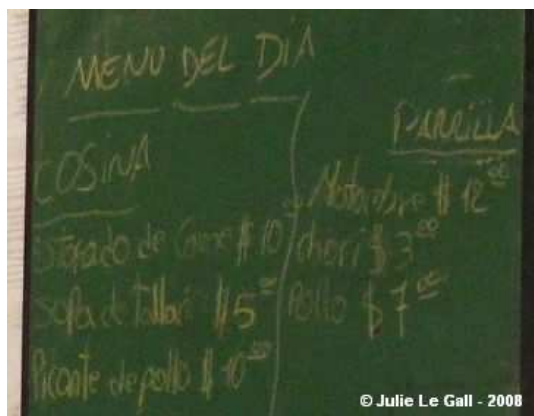 MENU DEL DIA
COSINA
ESTOFADO de Carne $10
Sopa de Tallarin $5 00
Picante de pollo $10 00
PARRILLA
Matambre $12 00
chori $3 00
Pollo $7 00
© Julie Le Gall - 2008